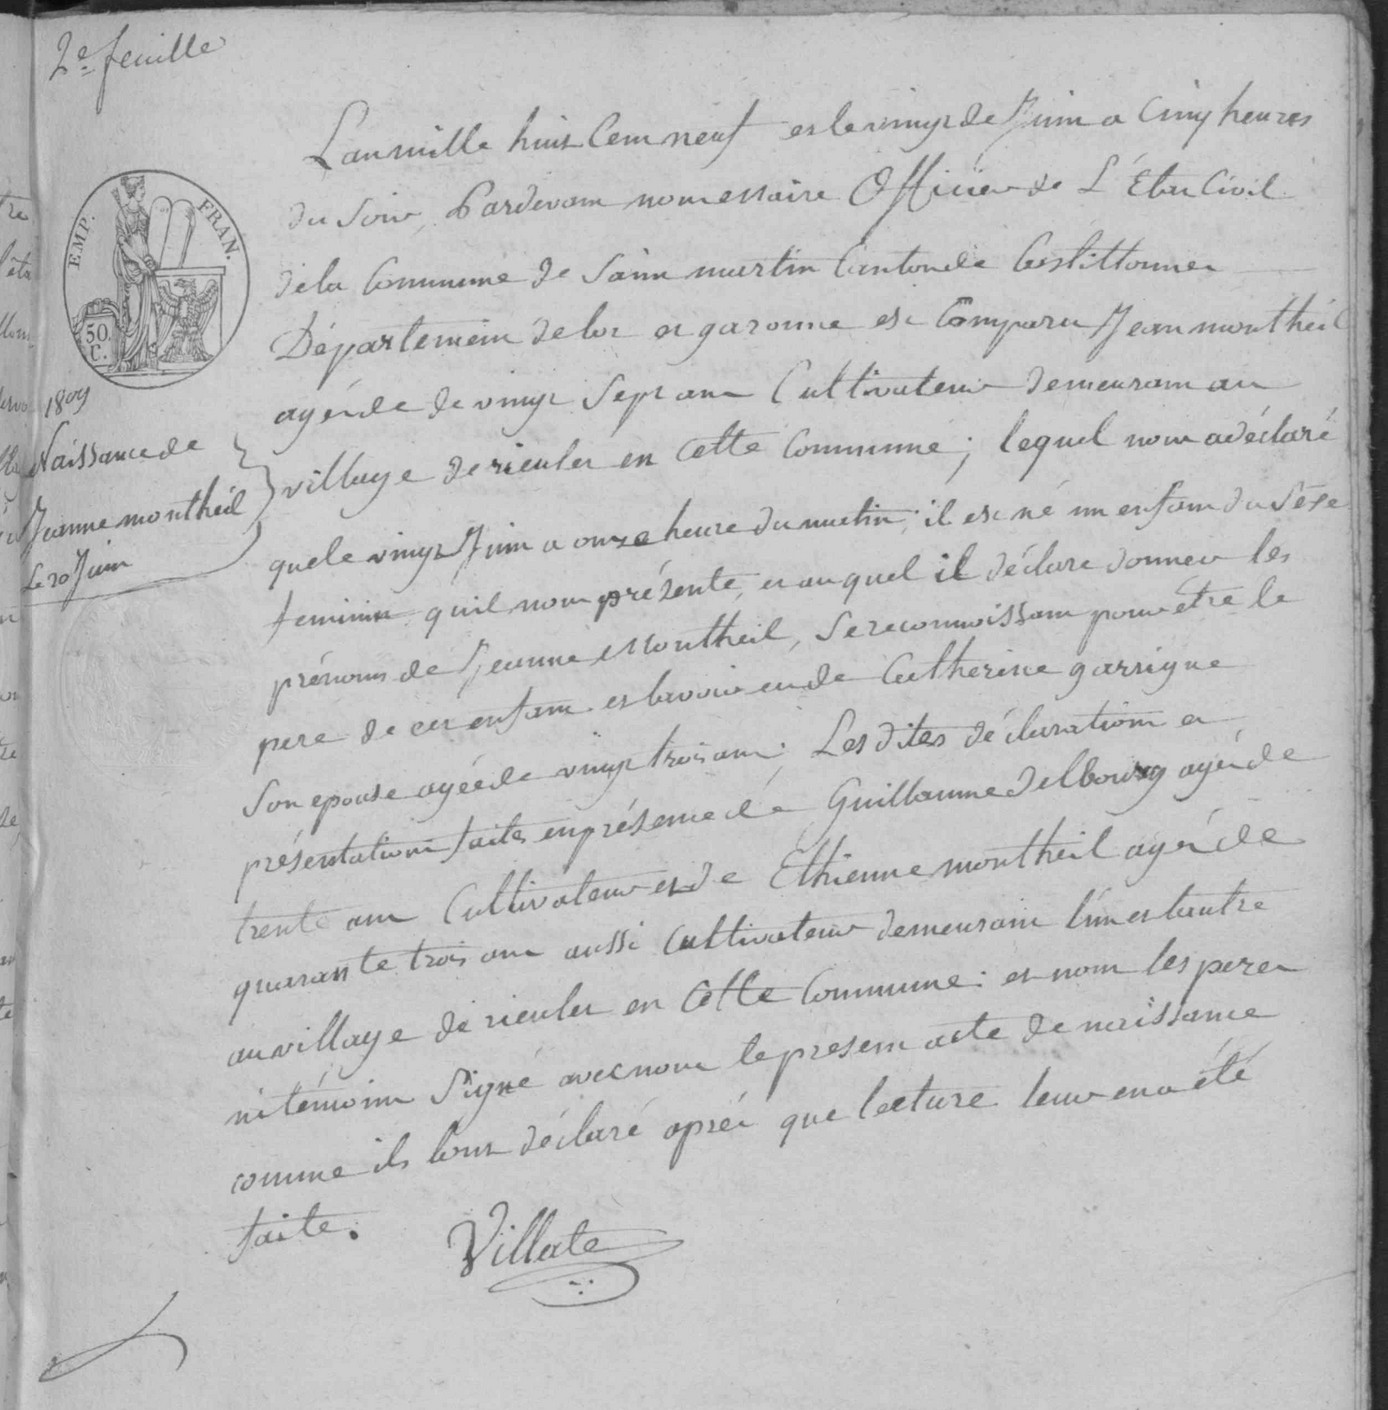 2e feuille
EMP. FRAN.
50. C.
1809
Naissance de
Jeanne montheil
Le 20 Juin
L'an mille huit Cent neuf et le vingt de Juin a Cinq heures
du Soir, Pardevant nous maire Officier de L'État Civil
de la Commune de Saint martin Canton de Castillonnes
Département de lot et garonne est Comparu Jean montheil
agé de de vingt Sept ans Cultivateur demeurant au
village de rieuler en Cette Commune; lequel nous a déclaré
que le vingt Juin a onze heure du matin, il est né un enfant du Séxe
feminin quil nous présente, et auquel il déclare donner les
prénoms de Jeanne Montheil, Se reconnoissant pour être le
pere de cet enfant et lavoir eu de Catherine garrigue
Son epouse agée de vingt trois ans; Les dites déclaration et
présentation faites en présence de Guillaume Delbourg agé de
trente ans Cultivateur et de Ethienne montheil agé de
quarante trois ans aussi Cultivateur demeurant l'un et lautre
au village de rieuler en Cette Commune: et nont les pere
ni témoins Signé avec nous le present acte de naissance
comme ils lont déclaré aprés que lecture leur en a été
faite.
Villate